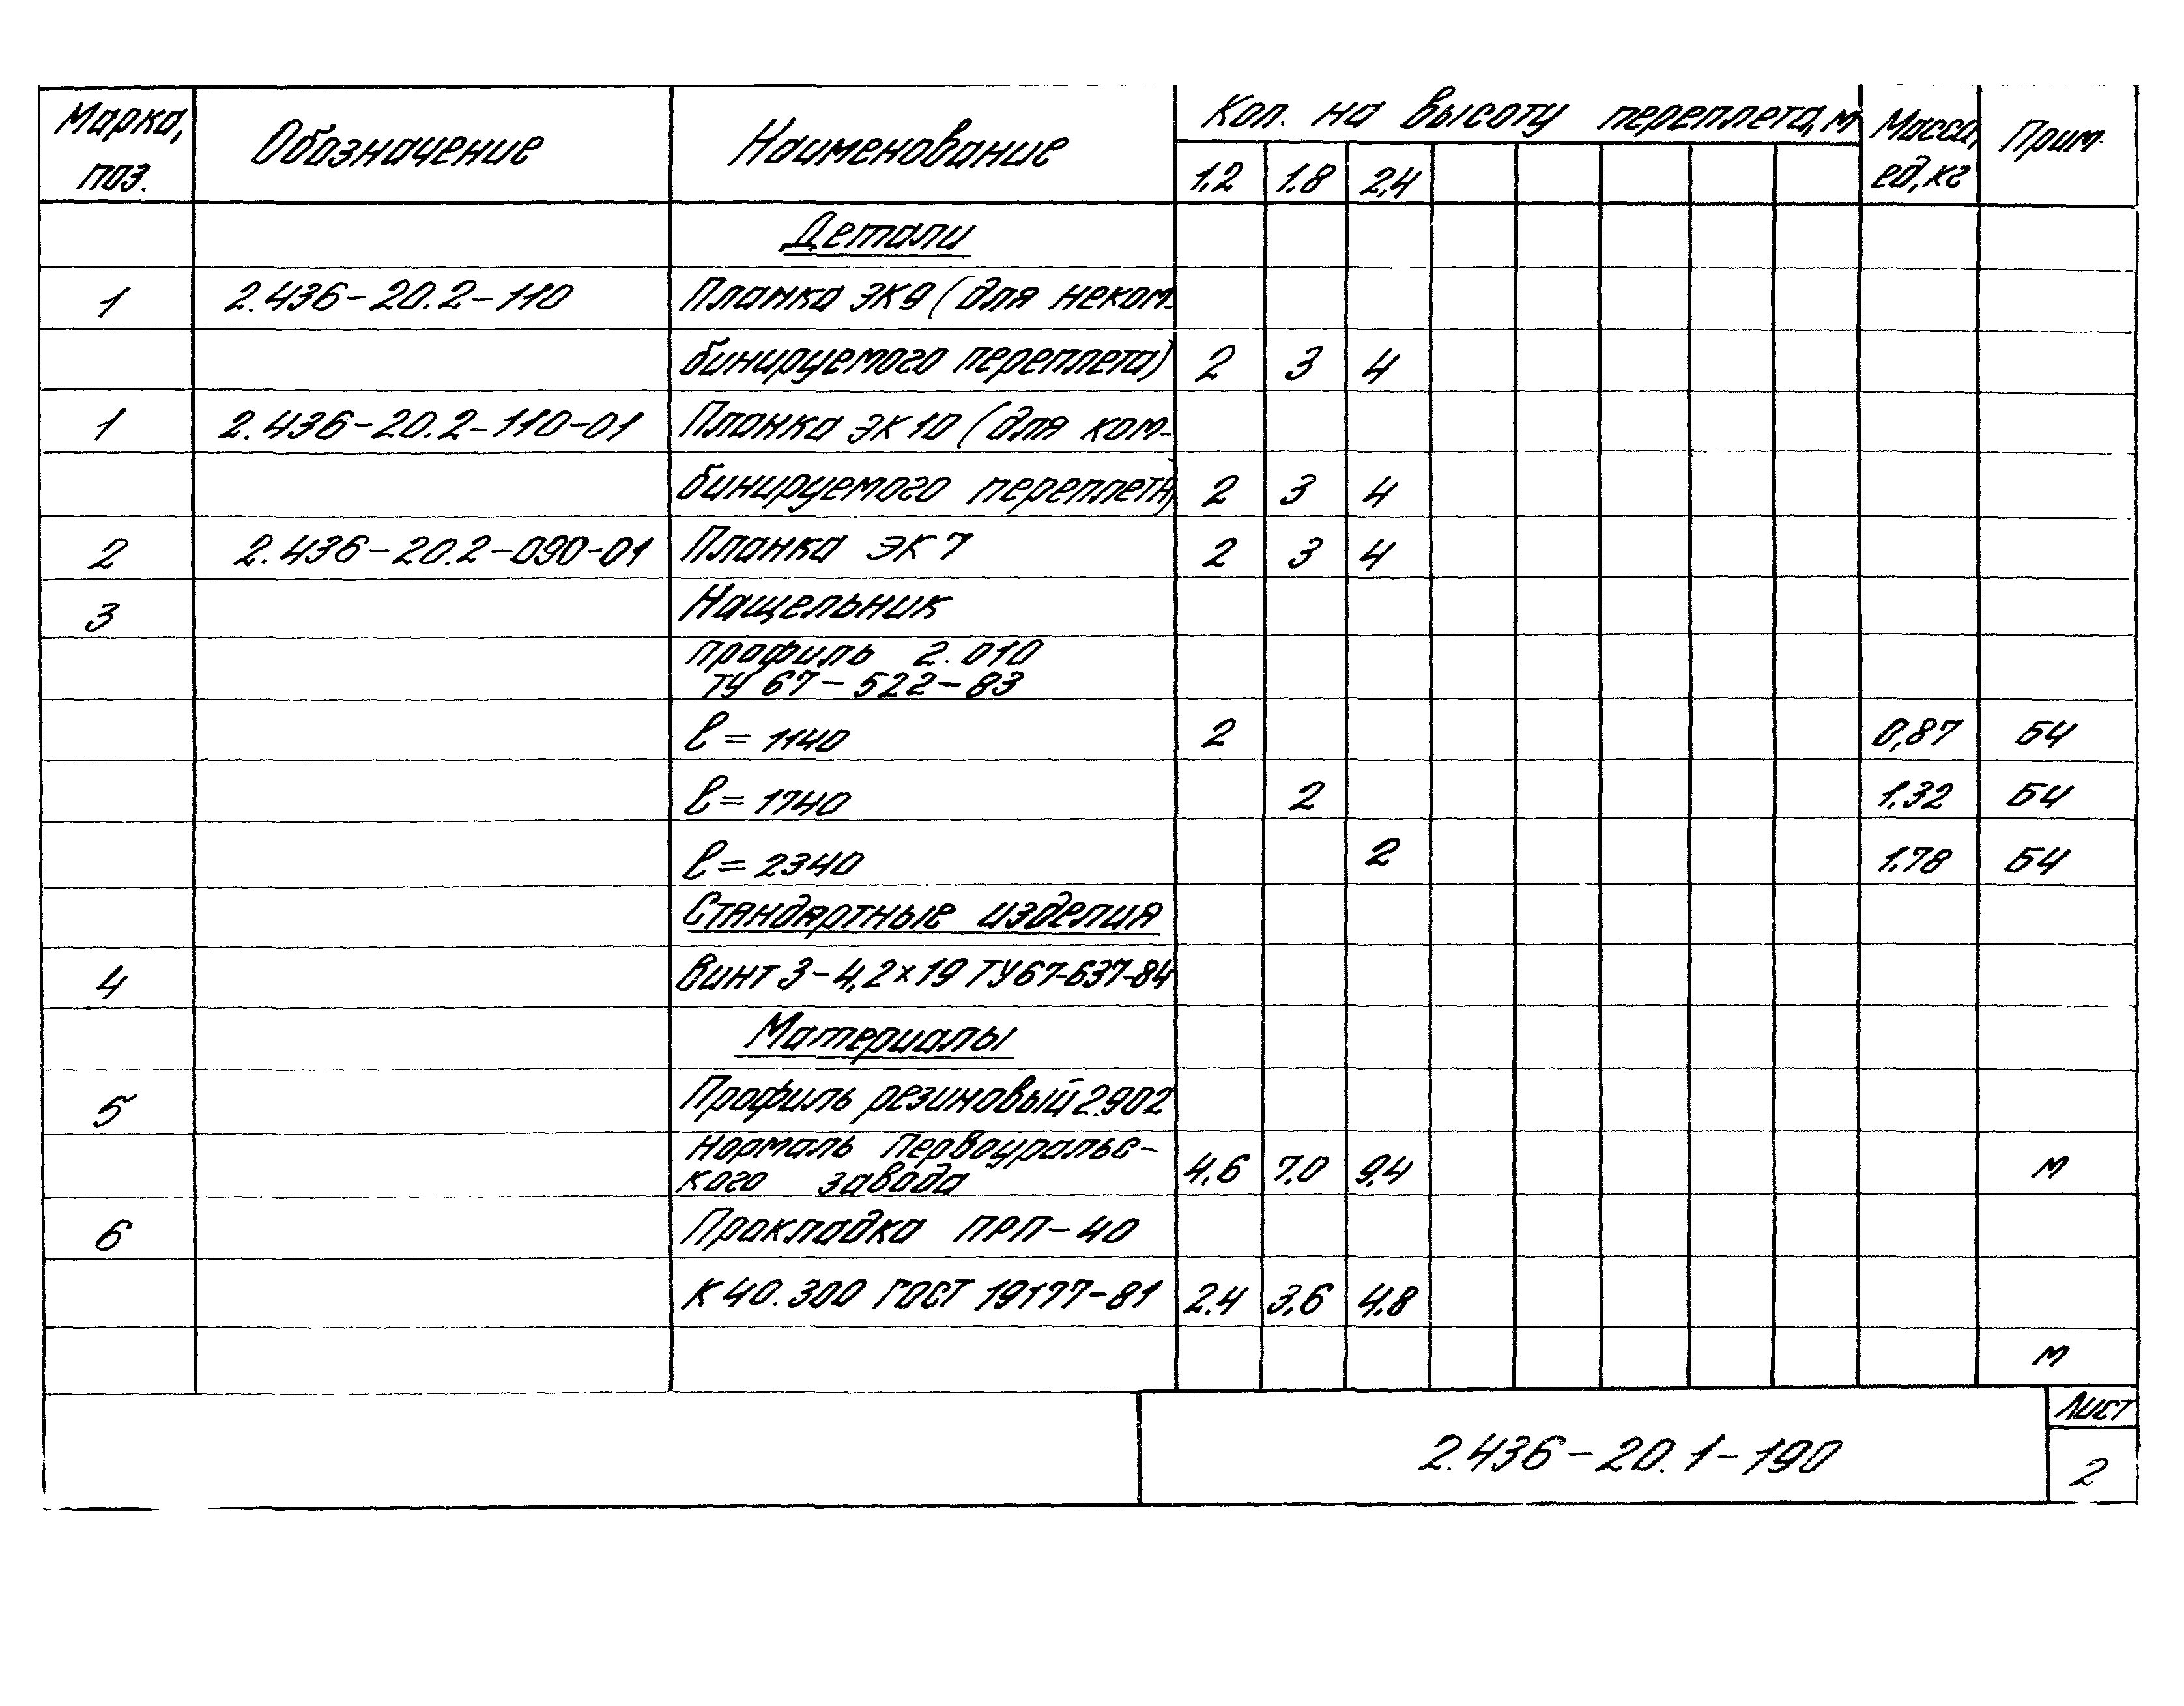 Марка, поз. Обозначение Наименование Кол. на высоту переплета, м Масса, ед, кг Прим.
1,2 1,8 2,4
Детали
1 2.436-20.2-110 Планка ЭК9 (для неком-
бинируемого переплета) 2 3 4
1 2.436-20.2-110-01 Планка ЭК10 (для ком-
бинируемого переплета) 2 3 4
2 2.436-20.2-090-01 Планка ЭК7 2 3 4
3 Нащельник
профиль 2.010
ТУ 67-522-83
ℓ = 1140 2 0,87 БЧ
ℓ = 1740 2 1,32 БЧ
ℓ = 2340 2 1,78 БЧ
Стандартные изделия
4 Винт 3-4,2×19 ТУ67-637-84
Материалы
5 Профиль резиновый 2.902
нормаль Первоуральс-
кого завода 4,6 7,0 9,4 м
6 Прокладка ПРП-40
К40.300 ГОСТ 19177-81 2.4 3,6 4,8
м
Лист
2.436-20.1-190 2